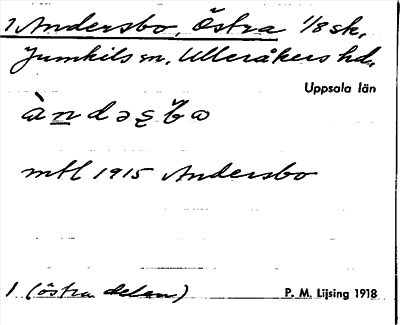 1 Andersbo, Östra 1/8 sk,
Jumkils sn, Ulleråkers hd.
Uppsala län
àndəʂbo
mtl 1915 Andersbo
1 (östra delen)
P. M. Lijsing 1918